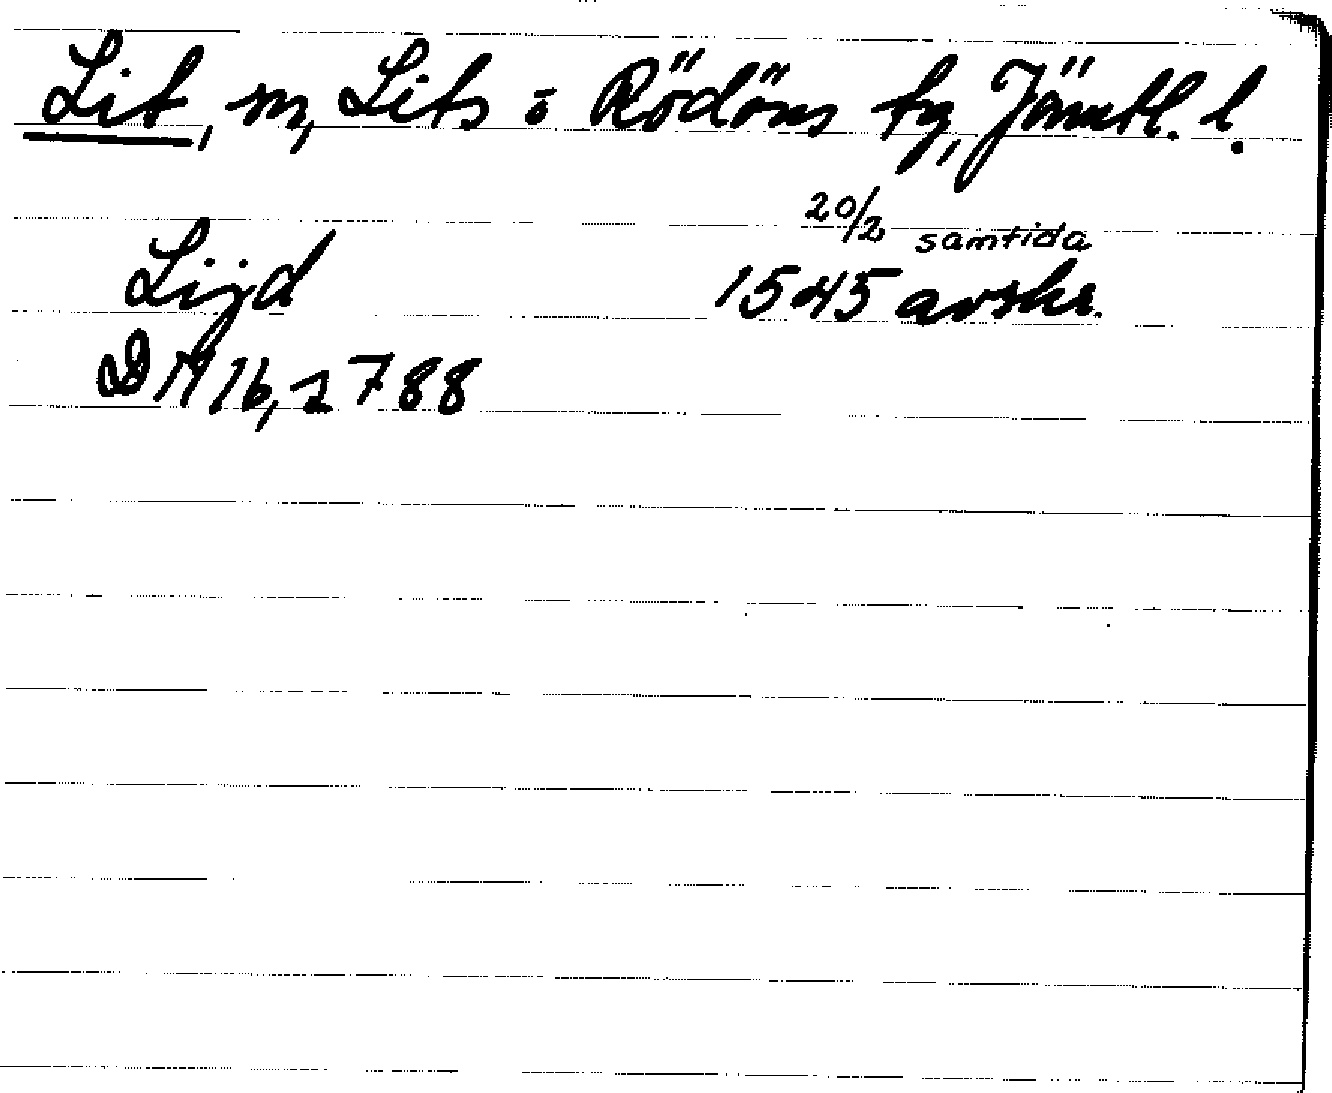 Lit, sn, Lits o Rödöns tg, Jämtl. l.
20/2 samtida
Lijd 1545 avskr.
DN 16, s 788